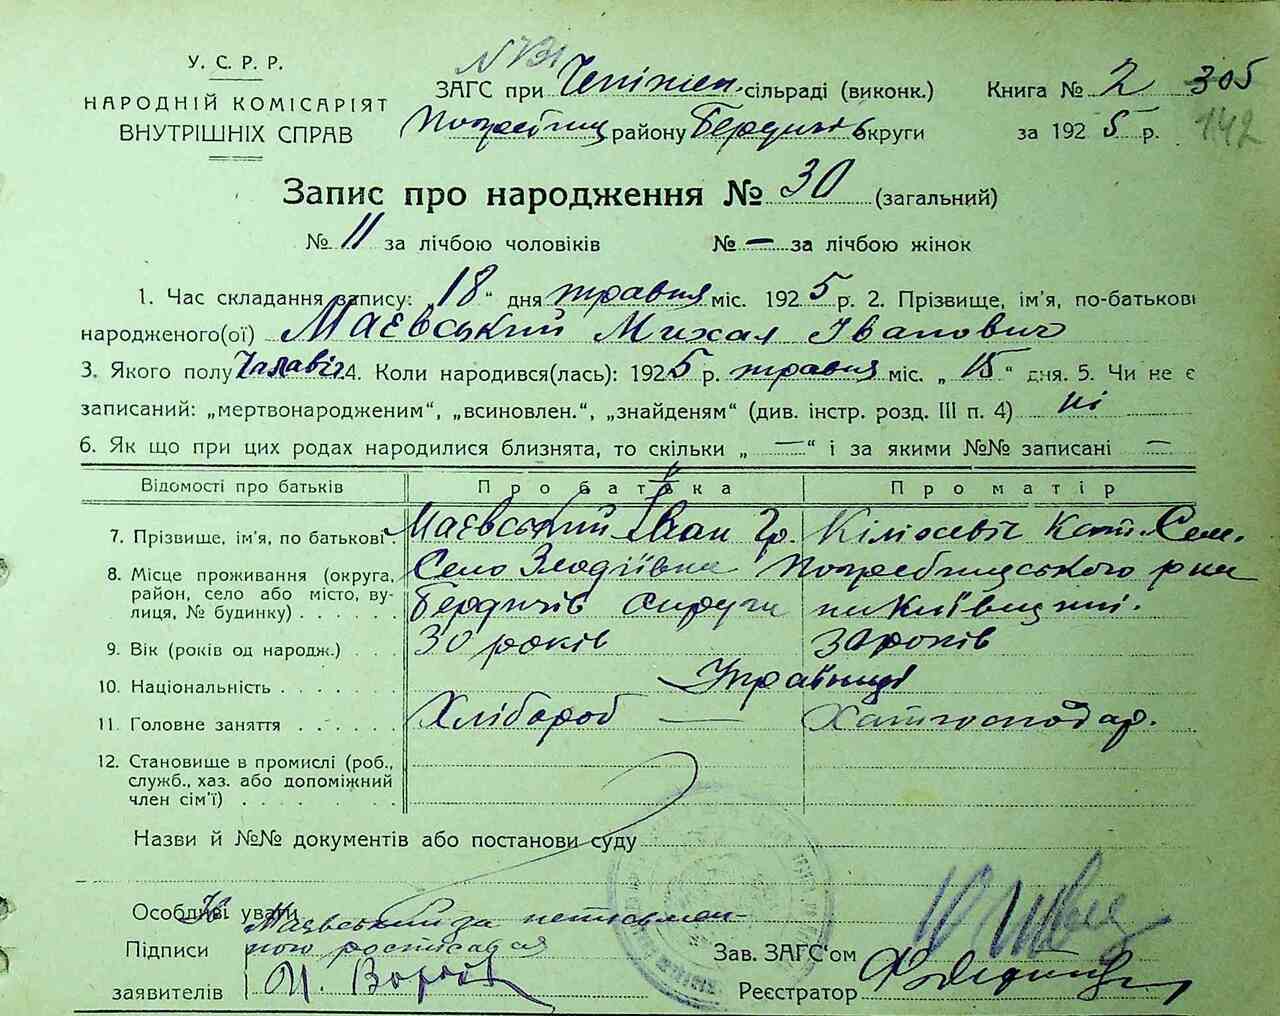 У. С. Р. Р.
НАРОДНІЙ КОМІСАРІЯТ
ВНУТРІШНІХ СПРАВ
ЗАГС при Чепіжен. сільраді (виконк.) Книга № 2 305
Погребищ району Бердичів округи за 1925 р. 142
Запис про народження № 30 (загальний)
№ 11 за лічбою чоловіків № — за лічбою жінок
1. Час складання запису: „18“ дня травня міс. 1925 р. 2. Прізвище, ім'я, по-батькові
народженого(ої) Маєвський Михал Іванович
3. Якого полу Чалавіч 4. Коли народився(лась): 1925 р. травня міс. „15“ дня. 5. Чи не є
записаний: „мертвонародженим“, „всиновлен.“, „знайденям“ (див. інстр. розд. III п. 4) ні
6. Як що при цих родах народилися близнята, то скільки „—“ і за якими №№ записані —
Відомості про батьків Про батька Про матір
7. Прізвище, ім'я, по батькові Маєвський Іван Гр. Кілієвич Кат. Сем.
8. Місце проживання (округа, район, село або місто, вулиця, № будинку) Село Злодіївка Погребищського р на
Бердичів округи на Київщині.
9. Вік (років од народж.) 30 років 30 років
10. Національність Українці
11. Головне заняття Хлібороб — Хатн господар.
12. Становище в промислі (роб.,
служб., хаз. або допоміжний
член сім'ї)
Назви й №№ документів або постанови суду
Особливі уваги
Маєвський за неписьмен-
Підписи ного росписався
заявителів
Зав. ЗАГС'ом
Реєстратор